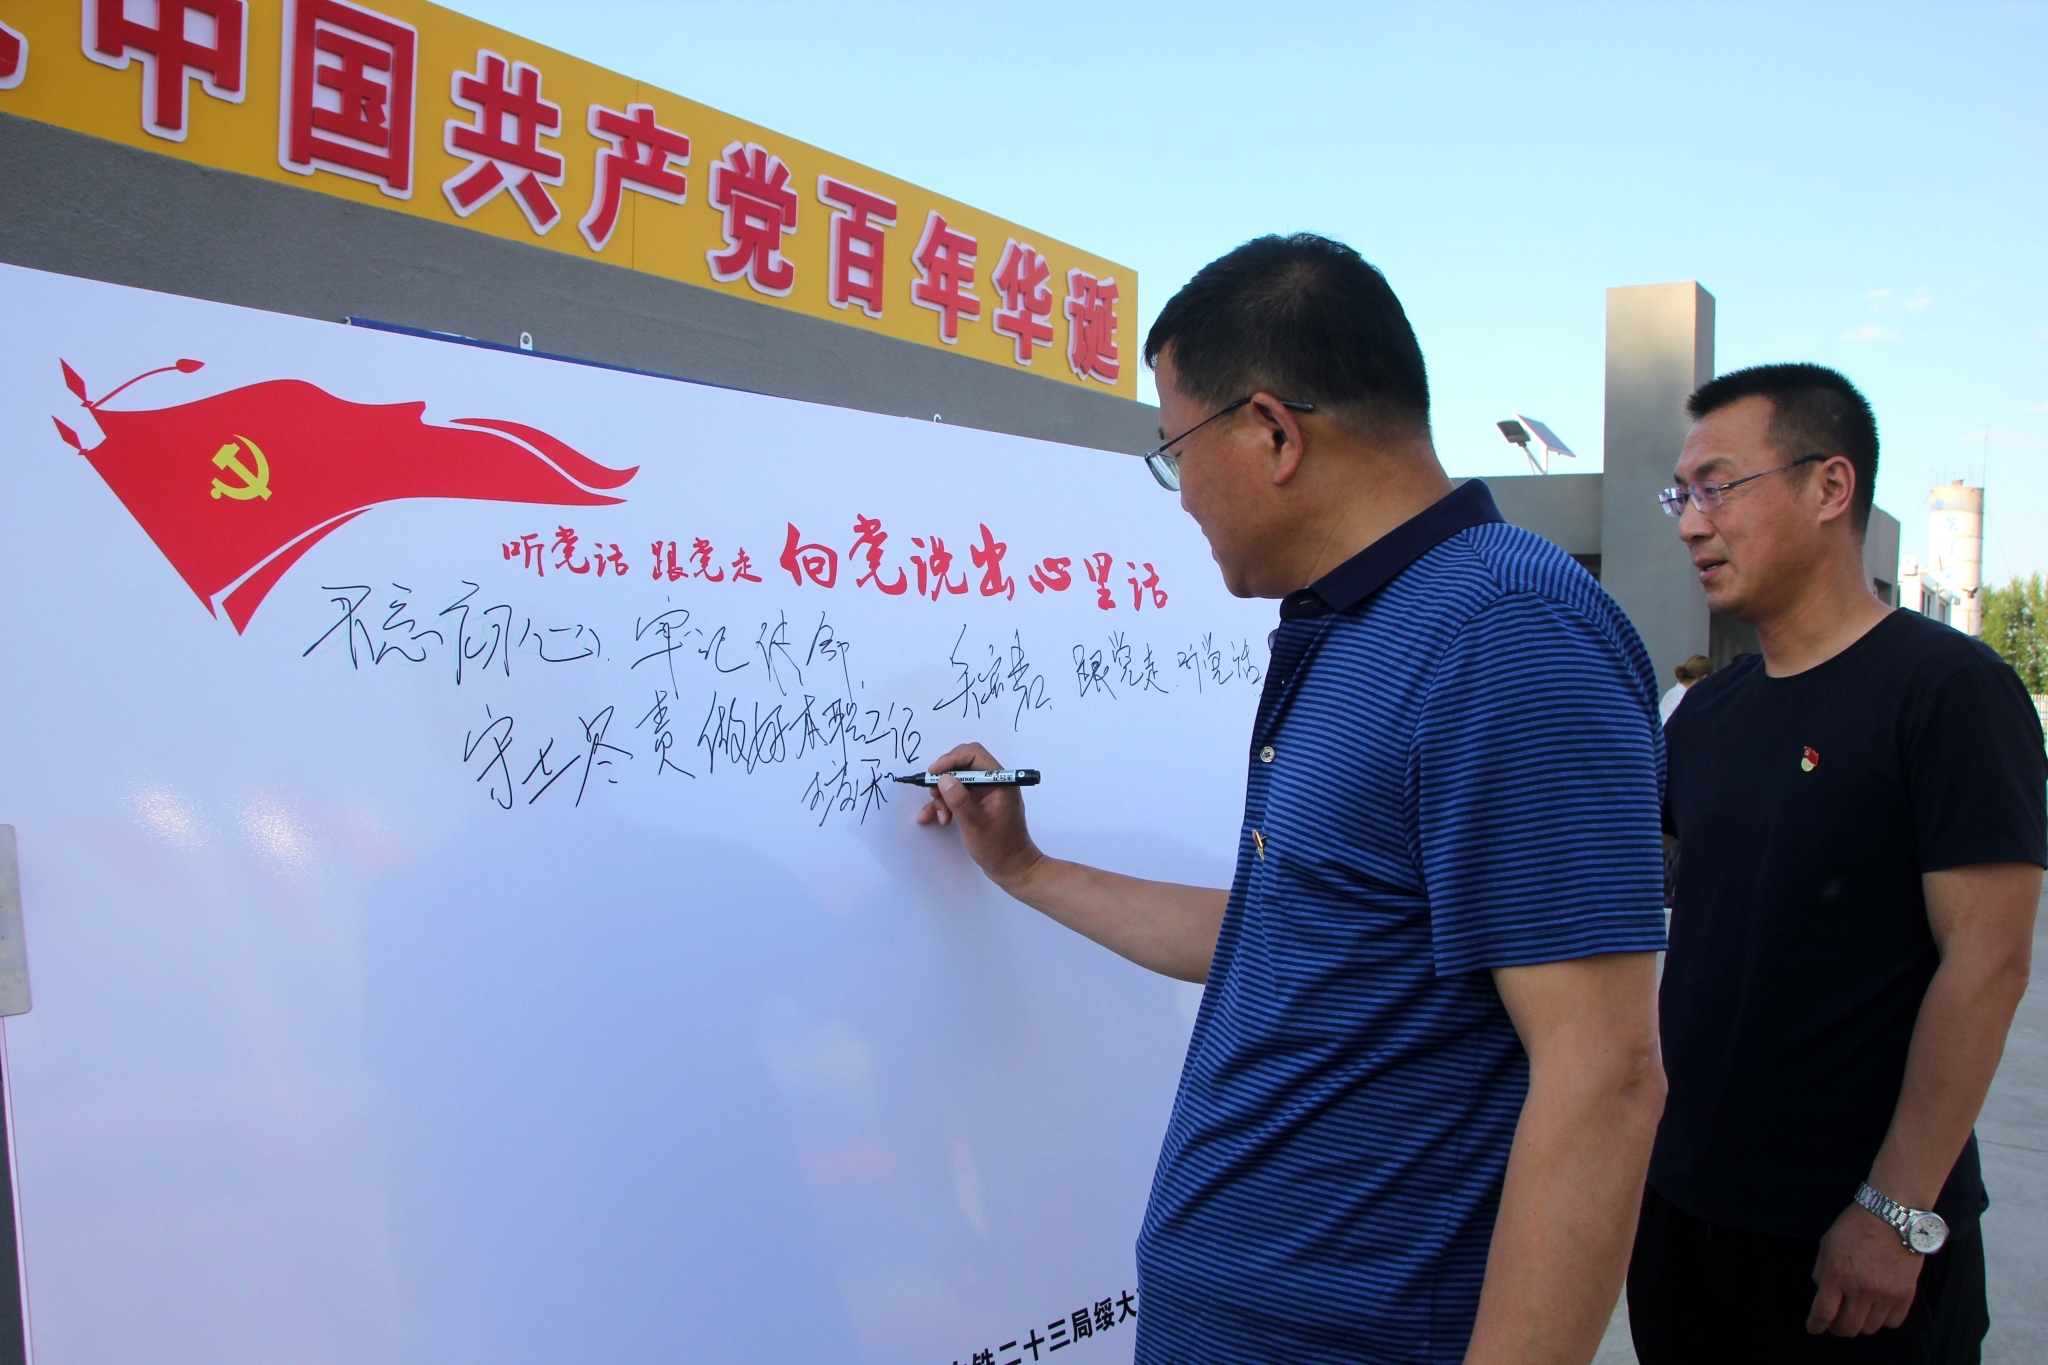 中国共产党百年华诞
听党话 跟党走 向党说出心里话
不忘初心、牢记使命
跟党走、听党话
守土尽责 做好本职工作
二十三局绥大